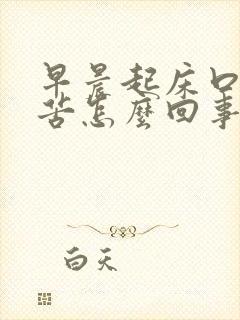 早晨起床口
苦怎麼回事
白天